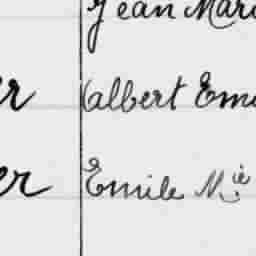 Jean Mari
er albert Emi
er Emile M.ie